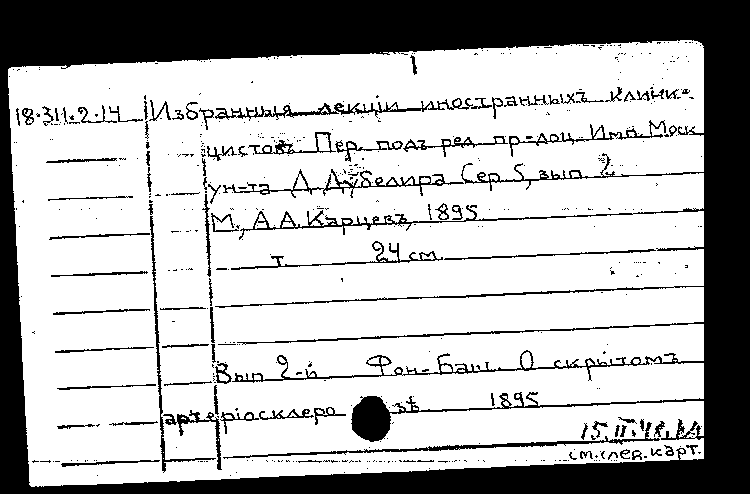 18.311.2.14 Избранныя лекціи иностранныхъ клини-
цистовъ. Пер. подъ ред. пр-доц. Имп. Моск
ун-та Д. Дубелира Сер. 5, вып. 2
М., А.А. Карцевъ, 1895
т. 24 см.
Вып 2-й Фон-Баш. О скрытомъ
артеріосклеро зѣ 1895
15.II.48.
см. след. карт.